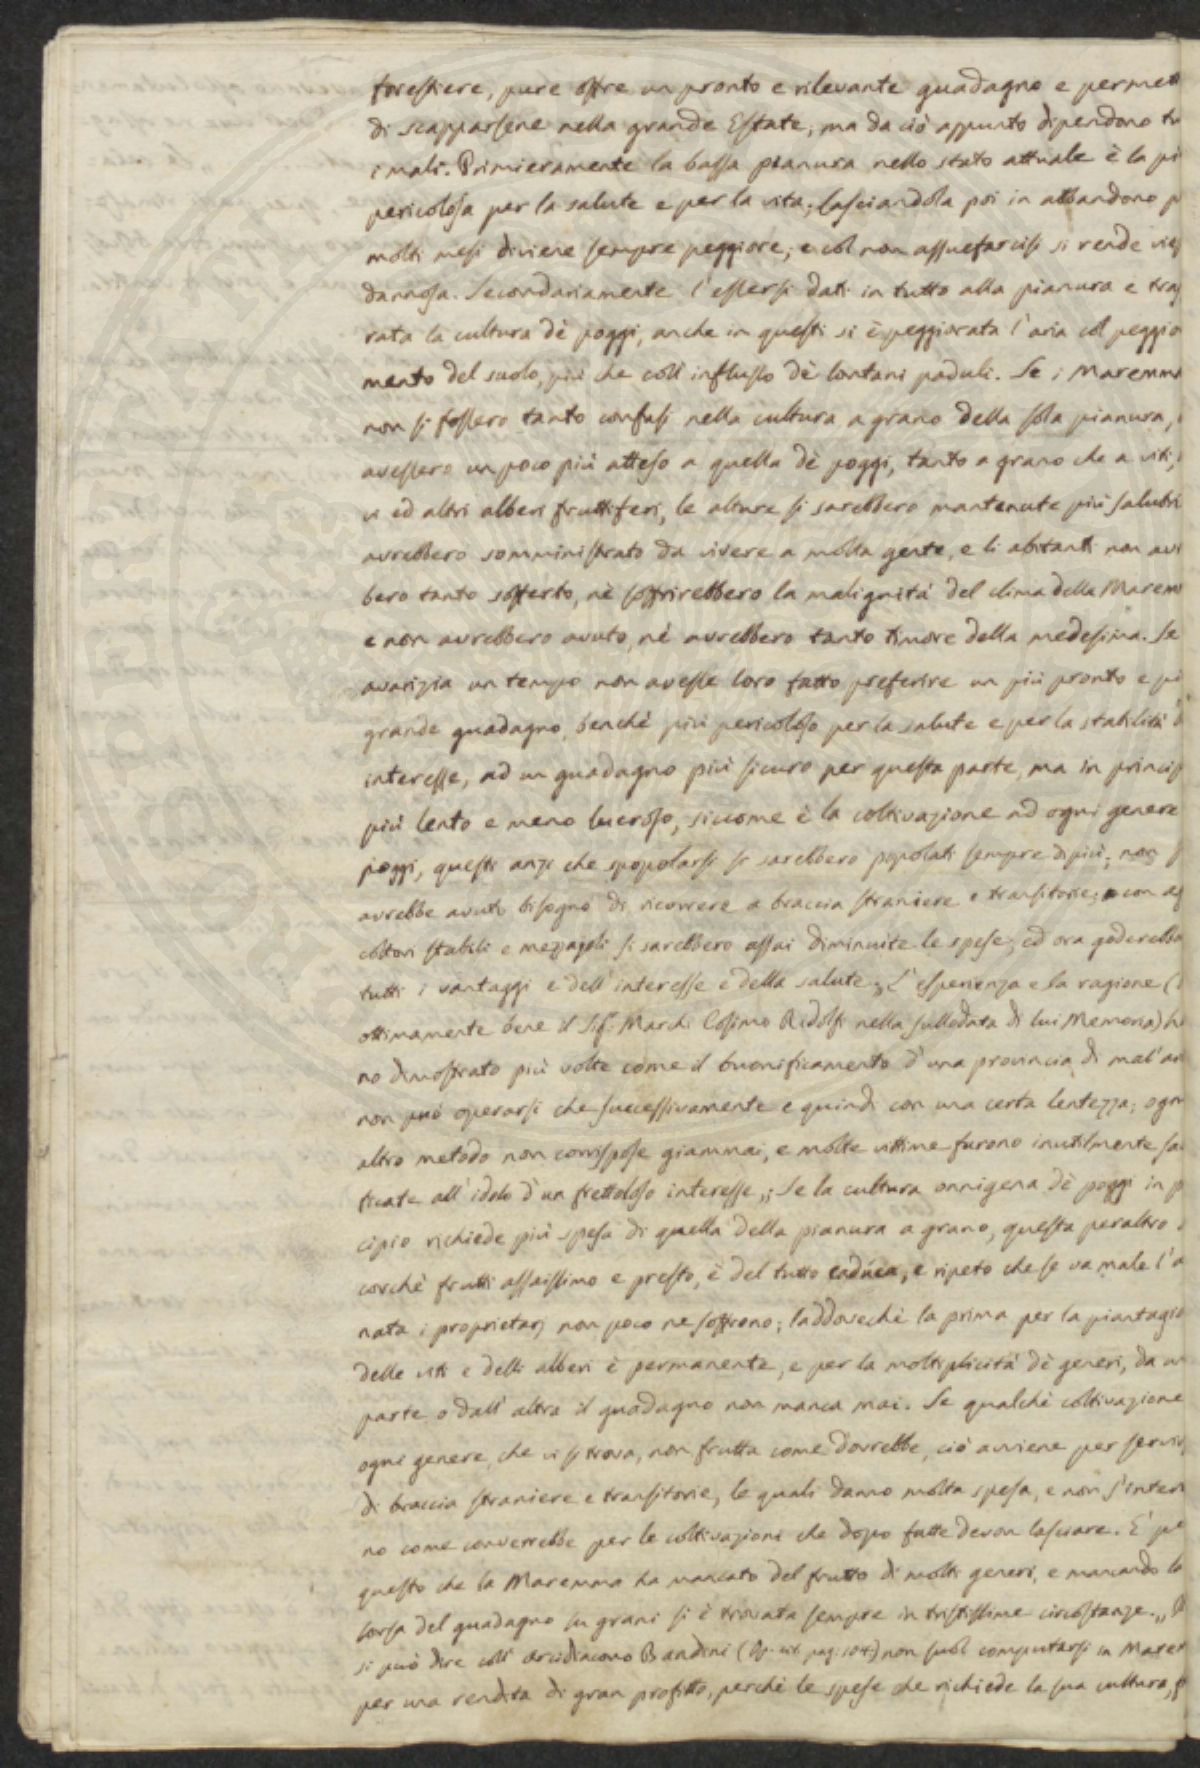 forestiere, pure offre un pronto e rilevante guadagno e permett
di scapparsene nella grande Estate; ma da ciò appunto dipendono tu
i mali. Primieramente la bassa pianura nello stato attuale è la pi
pericolosa per la salute e per la vita; lasciandola poi in abbandono p
molti mesi diviene sempre peggiore; e col non assuefarcisi si rende
dannosa. Secondariamente l'essersi dati in tutto alla pianura e tras
rata la cultura dè poggi, anche in questi si è peggiorata l'aria col peggio
mento del suolo, più che coll'influsso dè lontani paduli. Se i Maremma
non si fossero tanto confusi nella cultura a grano della sola pianura,
avessero un poco più atteso a quella dè poggi, tanto a grano che a viti,
vi ed altri alberi fruttiferi, le alture si sarebbero mantenute più salubri
avrebbero somministrato da vivere a molta gente, e li abitanti non avr
bero tanto sofferto, nè soffrirebbero la malignità del clima della Marem
e non avrebbero avuto, nè avrebbero tanto timore della medesima. Se
avarizia un tempo non avesse loro fatto preferire un più pronto e pi
grande guadagno, benchè più pericoloso per la salute e per la stabilità d
interesse, ad un guadagno più sicuro per questa parte, ma in princip
più lento e meno lucroso, siccome è la coltivazione ad ogni genere
poggi, questi anzi che spopolarsi si sarebbero popolati sempre di più; non s
avrebbe avuto bisogno di ricorrere a braccia straniere e transitorie; con ag
coltori stabili e mezzajoli si sarebbero assai diminuite le spese; ed ora goderebba
tutti i vantaggi e dell'interesse e della salute. „ L'esperienza e la ragione (
ottimamente bene il Sig. March. Cosimo Ridolfi nella sullodata di lui Memoria) ha
no dimostrato più volte come il buonificamento d'una provincia di mal'ar
non può operarsi che successivamente e quindi con una certa lentezza; ogn
altro metodo non corrispose giammai, e molte vittime furono inutilmente sa
ficate all'idolo d'un frettoloso interesse „; Se la cultura onnigena dè poggi in p
cipio richiede più spesa di quella della pianura a grano, questa peraltro
corchè frutti assaissimo e presto, è del tutto caduca, e ripeto che se va male l'a
nata i proprietarj non poco ne soffrono; laddovechè la prima per la piantagio
delle viti e delli alberi è permanente, e per la moltiplicità dè generi, da un
parte o dall'altra il guadagno non manca mai. Se qualche coltivazione
ogni genere, che vi si trova, non frutta come dovrebbe, ciò avviene per servir
di braccia straniere e transitorie, le quali danno molta spesa, e non s'inter
no come converrebbe per le coltivazioni che dopo fatte devon lasciare. E' pe
questo che la Maremma ha mancato del frutto di molti generi, e mancando la
sorsa del guadagno su grani si è trovata sempre in tristissime circostanze. „
si può dire coll'Arcidiacono Bandini (Op. cit. pag. 104) non suol computarsi in Marem
per una rendita di gran profitto, perchè le spese che richiede la sua cultura,